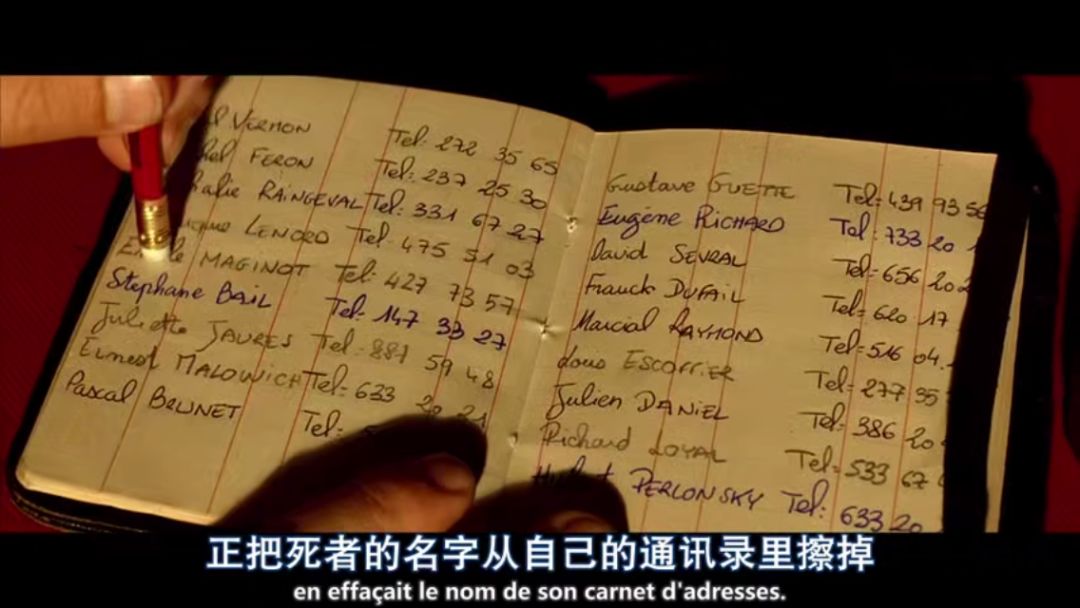 VERNON Tel: 272 35 65
FERON Tel: 237 25 30
RAINGEVAL Tel: 331 67 27
LENORD Tel: 475 51 03
MAGINOT Tel: 427 73 57
Stephane BAIL Tel: 147 33 27
Juliette JAURES Tel: 881 59 48
Ernest MALOWICH Tel: 633 20 21
Pascal BRUNET Tel:
Gustave GUETTE Tel: 439 93 56
Eugène RICHARD Tel: 733 20
David SEVRAL Tel: 656 20
Franck DUFAIL Tel: 620 17
Marcial RAYMOND Tel: 516 04
Escoffier Tel: 277 35
Julien DANIEL Tel: 386 20
Richard LOYAL Tel: 533 67
PERLONSKY Tel: 633 20
正把死者的名字从自己的通讯录里擦掉
en effaçait le nom de son carnet d'adresses.